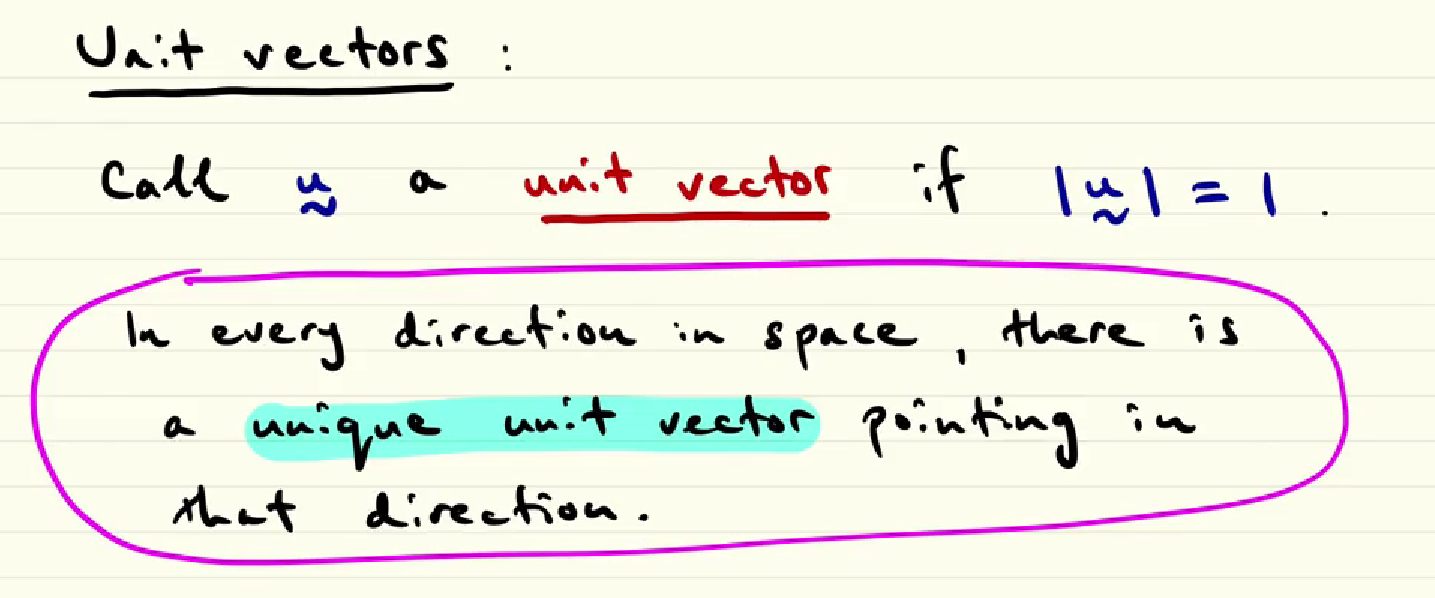 Unit vectors :
Call u a unit vector if |u| = 1 .
In every direction in space, there is
a unique unit vector pointing in
that direction.